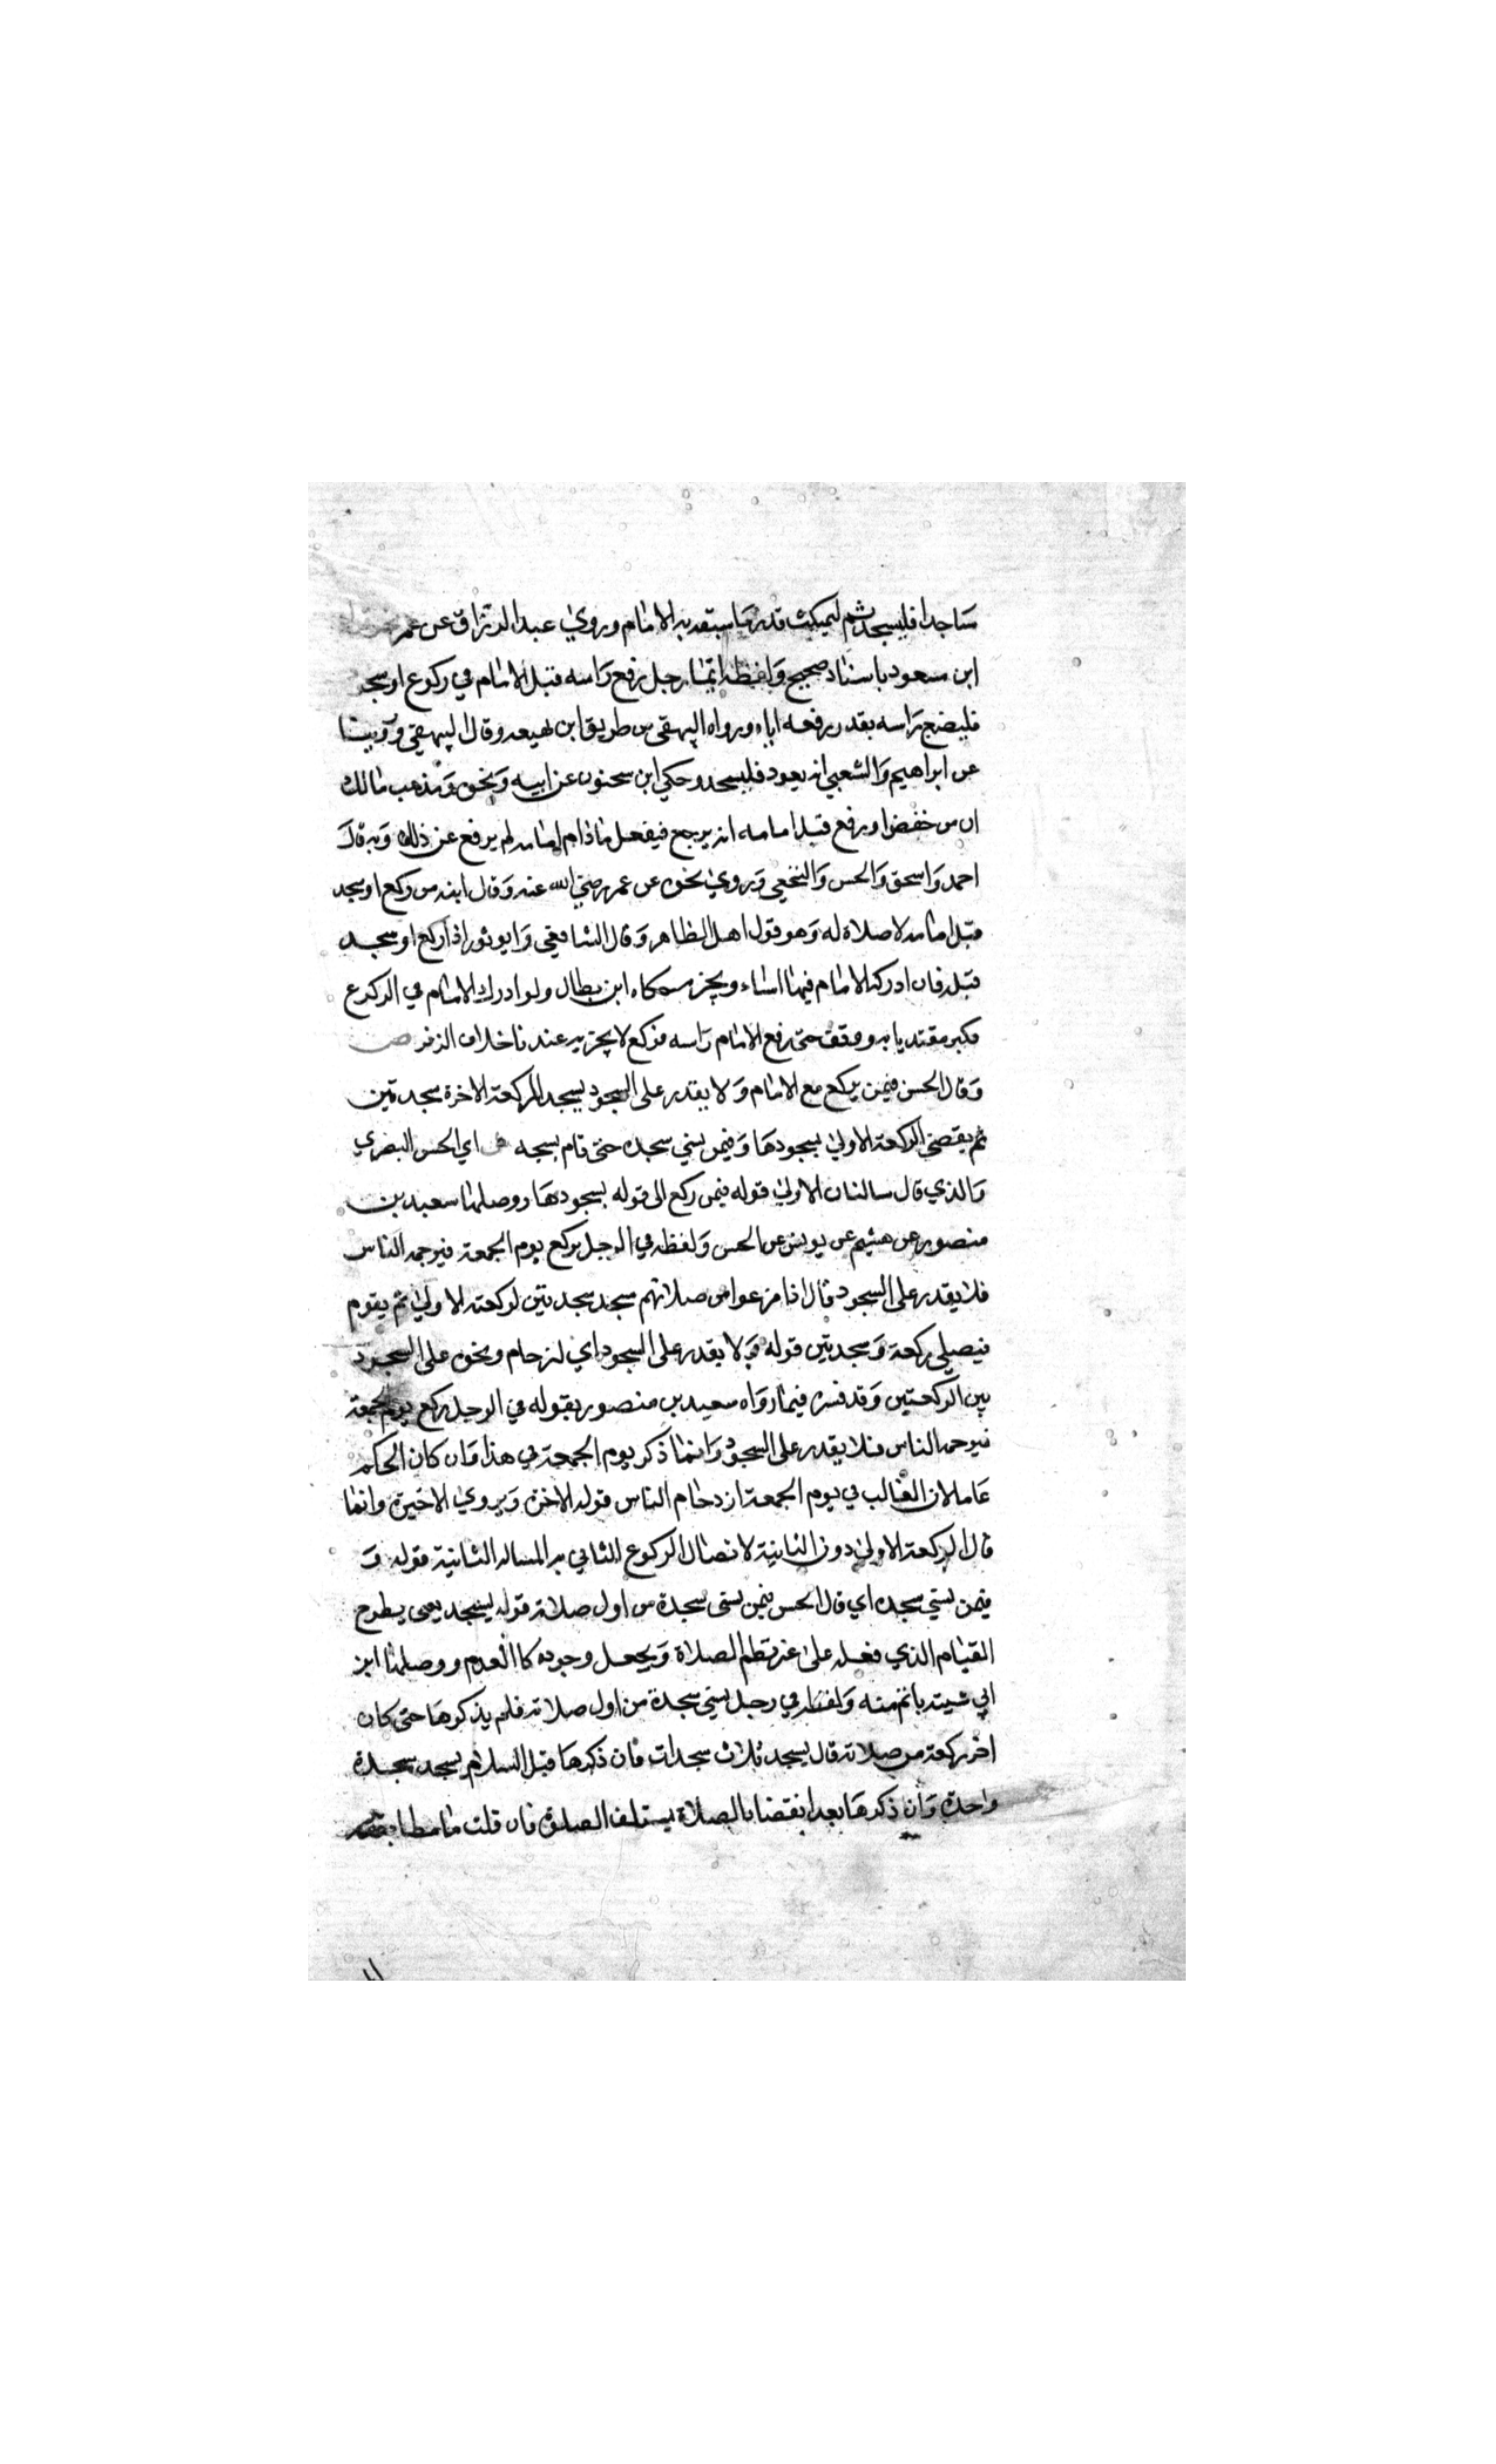 ساجدا فليسجد ثم ليمكث قدر ما سبقه به الامام وروي عبد الرزاق عن عمر
ابن مسعود باسناد صحيح ولفظه ايما رجل رفع راسه قبل الامام في ركوع او سجد
فليضع راسه بقدر رفعه اياه ورواه البهقي من طريق ابن لهيعه وقال البيهقي وروينا
عن ابراهيم والشعبي انه يعود فليسجد وحكي ابن سحنون عن ابيه ونحوه ومذهب مالك
ان من خفض او رفع قبل امامه انه يرجع فيفعل ما دام امامه لم يرفع عن ذلك وبه قال
احمد واسحق والحسن والنخعي وروي نحوه عن عمر رضي الله عنه وقال ابنه من ركع او سجد
قبل امامه لا صلاة له وهو قول اهل الظاهر وقال الشافعي وابو ثور اذا ركع او سجد
قبله فان ادركه الامام فيهما اساء ويجزيه حكاه ابن بطال ولو ادرك الامام في الركوع
فكبر مقتديا به ووقف حتى رفع الامام راسه فركع لا يجزيه عندنا خلاف الزفر ص
وقال الحسن فيمن يركع مع الامام ولا يقدر على السجود يسجد للركعة الاخرة سجدتين
ثم يقضي الركعة الاولي بسجودها وفيمن نسي سجده حتى قام يسجد ش اي الحسن البصري
والذي قال سالنان الاولي قوله فيمن ركع الى قوله بسجودها ووصلها سعيد بن
منصور عن هشيم عن يونس عن الحسن ولفظه في الرجل يركع يوم الجمعة فيزحمه الناس
فلا يقدر على السجود قال اذا فرغوا من صلاتهم سجد سجدتين لركعته الاولي ثم يقوم
فيصلي ركعة وسجدتين قوله ولا يقدر على السجود اي لزحام ونحوه على السجود
بين الركعتين وقد فسره فيما رواه سعيد بن منصور بقوله في الرجل يركع يوم الجمعة
فيزحمه الناس فلا يقدر على السجود وانما ذكر يوم الجمعة في هذا وان كان الحكم
عاما لان الغالب في يوم الجمعة ازدحام الناس قوله الاخرة ويروي الاخيرة وانما
قال الركعة الاولي دون الثانية لاتصال الركوع الثاني به المساله الثانية قوله و
فيمن نسي سجده اي قال الحسن فيمن نسى سجدة من اول صلاته قوله يسجد يعني يطرح
القيام الذي فعله على غير نظم الصلاة ويجعل وجوده كا العدم ووصلها ابن
ابي شيبه باتم منه ولفظه في رجل نسي سجدة من اول صلاته فلم يذكرها حتى كان
اخر ركعة من صلاته قال يسجد ثلاث سجدات فان ذكرها قبل السلام يسجد سجدة
واحدة وان ذكرها بعد انقضا الصلاة يستانف الصلاة فان قلت ما مطابقته